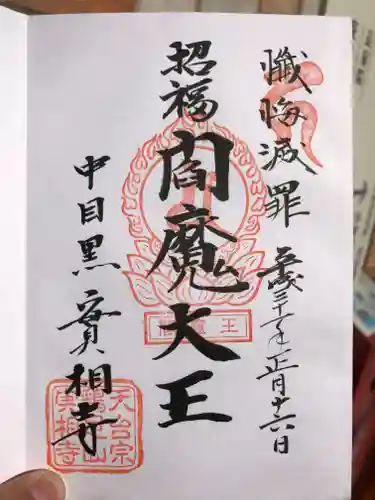 懺悔滅罪
平成三十一年正月十六日
招福
閻魔大王
中目黒
實相寺
王魔閻
天台宗
實相寺